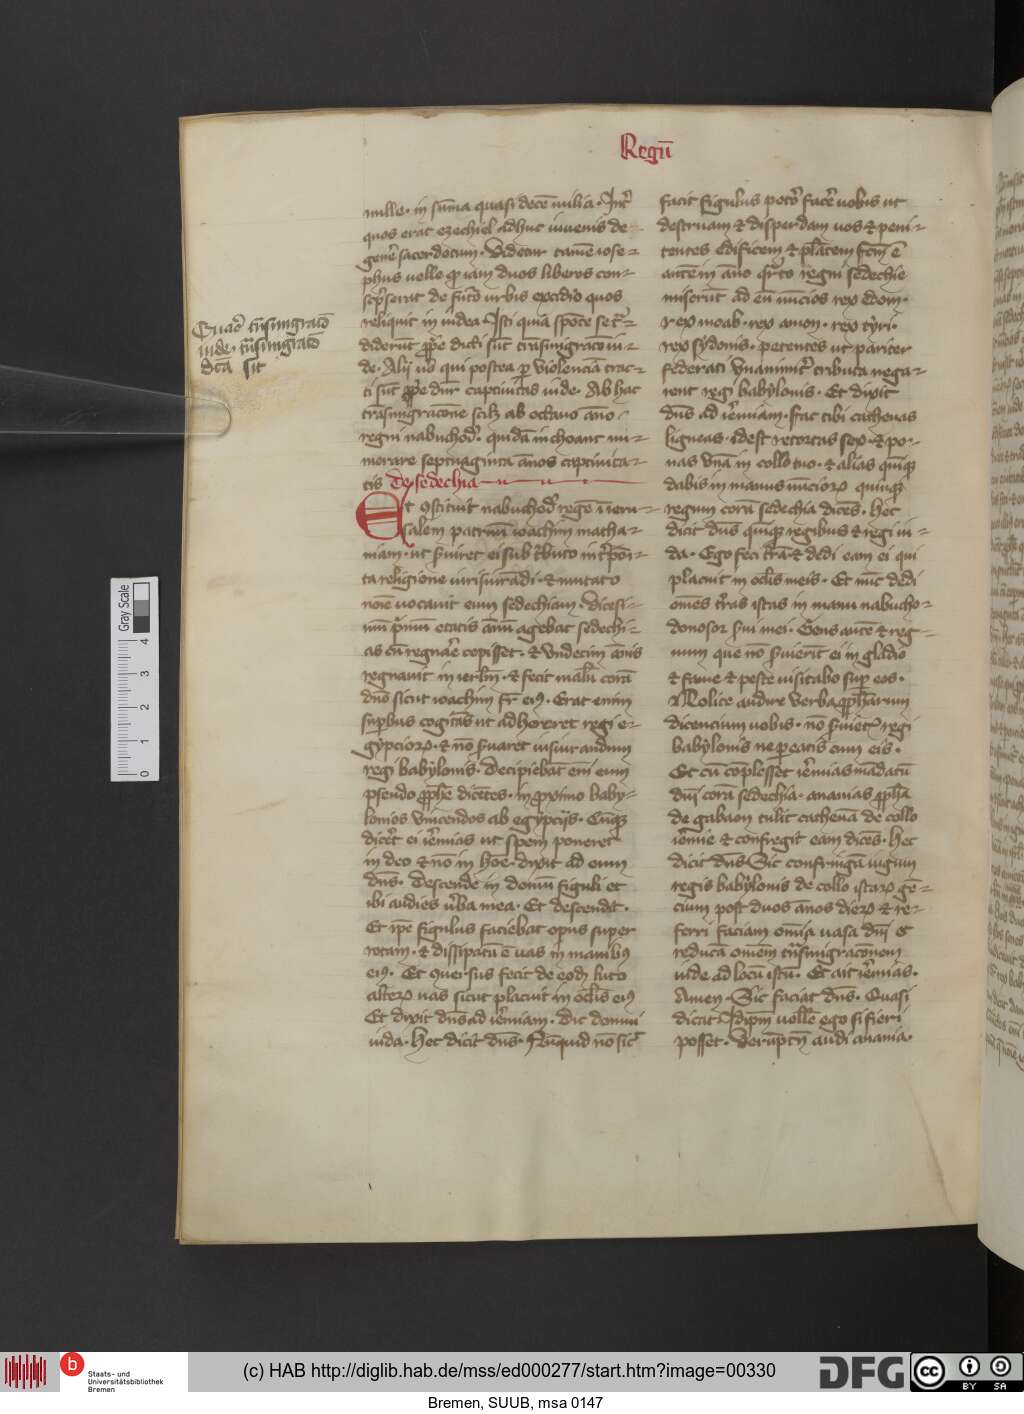 Regū
mille. in sūma quasi decē milia. Int̄
quos erat ezechiel adhuc iuuenis de
gene᷒ sacerdotum. Videtur tamē iose-
phus uelle qͥ iam duos liberos con-
de fut᷒o urbis excidio quos
reliquit in iudea. Isti quia spōte se t᷒-
diderūt ꝓp̄e dicti sūt trāsmigracō iu-
de. Alij uō qui postea ꝑ violenciā trac-
ti sūt ꝓp̄e dn̄r captiuitas iude. Ab hac
trāsmigracōne scilꝫ ab octauo āno
regni nabuchod᷒. quidā inchoant nu-
merare septuaginta ānos captiuita-
tis De sedechia
Et ꝯstituit nabuchod᷒ regē ī ieru-
salem patruū ioachim matha-
niam. ut s̄uiret ei sub t᷒buto
ta religione iurisiurādi. et mutato
noīe uocauit eum sedechiam. Vicesi-
mū p᷒mū etatis ānū agebat sedechi-
as cū regnā᷒e cepisset. et vndecim ānis
regnauit in ierlm̄. et fecit malū corā
dn̄o sicut ioachim fr̄ eiꝯ. Erat enim
suꝑbus cogitās ut adhereret regi e-
gypcioꝝ. et nō s̄uaret iusiurandum
regi babylonis. Decipiebāt em̄ eum
pseudo ꝓph̄e dicētes. in ꝓximo baby-
lonios vincendos ab egypcijs. Cūqꝫ
dicē᷒t ei iē᷒mias ut spem poneret
in deo et nō in hoīe. dixit ad eum
dn̄s. Descende in domū figuli et
ibi audies v̄ba mea. Et descendit.
Et ip̄e figulus faciebat opus super
rotam. et dissipatū ē uas in manibꝯ
eiꝯ. Et fecit de eodē luto
alteꝝ uas sicut placuit in oclīs eiꝯ
Et dixit dn̄s ad iē᷒miam. Dic domui
iuda. Hec dicit dn̄s. Nūquid nō sic᷒
facit figulus pot᷒o facē᷒ uobis ut
destruam et disperdam uos et peni-
tentes edificem et plātem fcm̄ ē
autē in āno q᷒rto regni sedechie
miserūt ad eū nūcios rex edom.
rex moab. rex amon. rex tyri.
rex sydonis. petentes ut pariter
federati vnanimit᷒ tributa nega-
rent regi babylonis. Et dixit
dn̄s ad iē᷒miam. fac tibi cathenas
ligneas. idest retortas sex. et po-
nas vnā in collo tuo. et alias quīqꝫ
dabis in manus nūcioꝝ quiqꝫ
regum corā sedechia dicēs. hec
dicit dn̄s quiqꝫ regibus et regi iu-
da. Ego feci t᷒rā et dedi eam ei qui
placuit in oclīs meis. Et nūc dedi
omēs t᷒ras istas in manu nabucho-
donosor s̄ui mei. Gens autē et reg-
num que nō s̄uierit ei in gladio
et fame et peste uisitabo suꝑ eos.
Nolite audire verba ꝓphārum
dicencium uobis. nō s̄uiet᷒ regi
babylonis ne pereatis cum eis.
Et cū cōplesset iē᷒mias mādatū
dn̄i corā sedechia. ananias ꝓphā
de gabaon tulit cathenā de collo
iē᷒mie et confregit eam dicēs. hec
dicit dn̄s Sic confringā iugum
regis babylonis de collo istaꝝ gē-
cium post duos ānos dieꝝ et re-
ferri faciam omīa uasa dn̄i et
reducā omēm trāsmigracōnem
iude ad locū istū. Et ait iē᷒mias.
Amen. Sic faciat dn̄s. Quasi
dicat. Idip̄m vellē ego si fieri
posset. Verūptn̄ audi anania.
Quaē᷒ trāsmigracō
iude. trāsmigracō
dc̄ā sit
Gray Scale
0 1 2 3 4
b
Staats- und
Universitätsbibliothek
Bremen
(c) HAB http://diglib.hab.de/mss/ed000277/start.htm?image=00330
DFG
cc BY SA
Bremen, SUUB, msa 0147